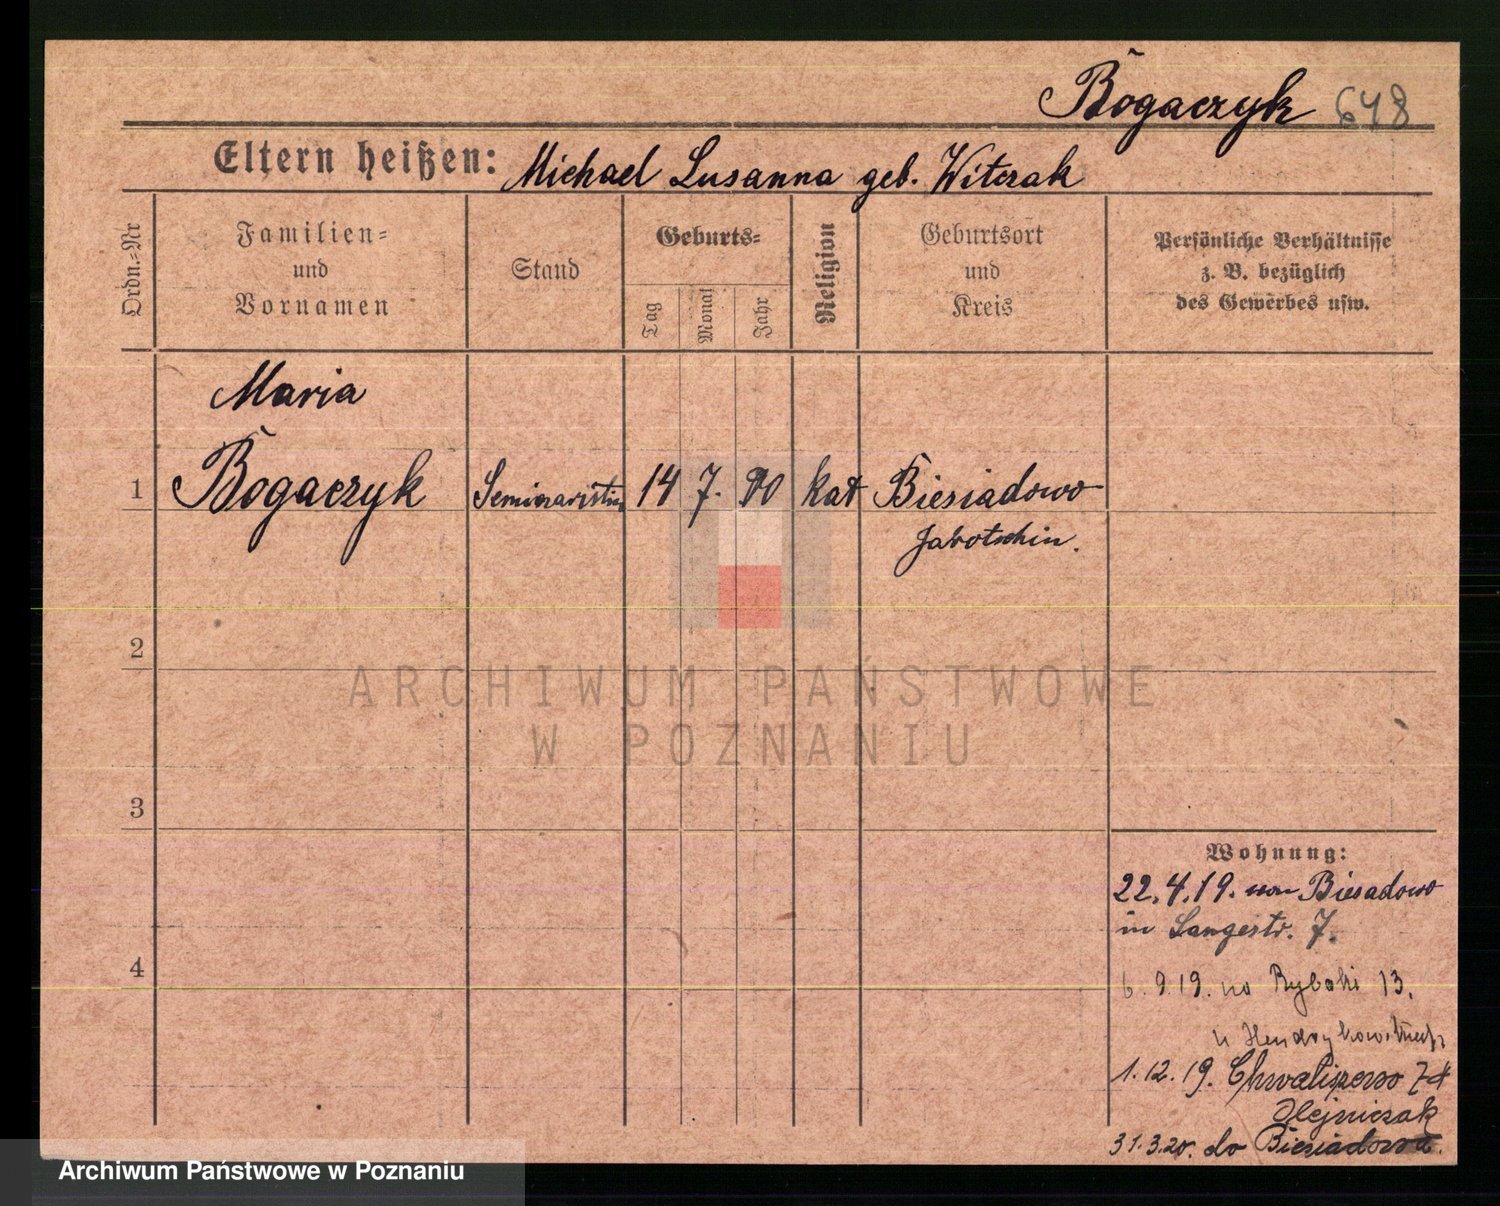 Bogaczyk 648
Eltern heißen: Michael Susanna geb. Witczak
Ordn.=Nr
Familien=
und
Vornamen
Stand
Geburts=
Tag
Monat
Jahr
Religion
Geburtsort
und
Kreis
Persönliche Verhältnisse
z. B. bezüglich
des Gewerbes usw.
Maria
1 Bogaczyk Seminaristin 14 7. 00 kat Biesiadowo
Jarotschin.
2
3
4
Wohnung:
22.4.19. von Biesadowo
in Langestr. 7.
6.9.19. na Rybaki 13.
u
1.12.19. 74
Olejniczak
31.3.20. do Biesiadowa.
ARCHIWUM PAŃSTWOWE
W POZNANIU
Archiwum Państwowe w Poznaniu